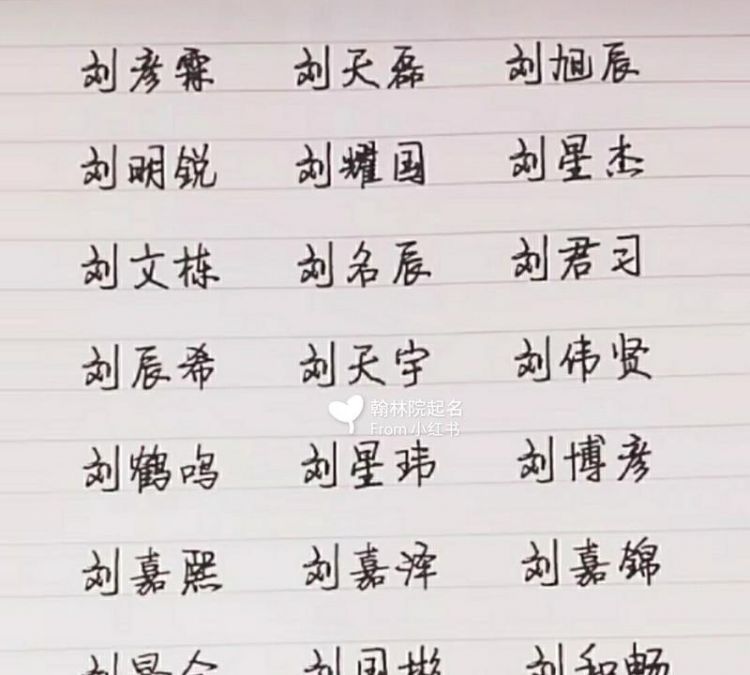 刘彦霖 刘天磊 刘旭辰
刘明锐 刘耀国 刘星杰
刘文栋 刘名辰 刘君习
刘辰希 刘天宇 刘伟贤
翰林院起名
From小红书
刘鹤鸣 刘星玮 刘博彦
刘嘉熙 刘嘉泽 刘嘉锦
刘 刘国彬 刘和畅